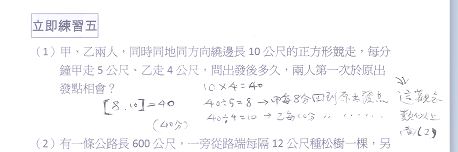 立即練習五
(1) 甲、乙兩人，同時同地同方向繞邊長 10 公尺的正方形競走，每分
鐘甲走 5 公尺、乙走 4 公尺，問出發後多久，兩人第一次於原出
發點相會？
10×4=40
[8.10]=40
40÷5=8→甲每8分回到原出發點
(40分)
40÷4=10→乙每10分
這觀念
(2) 有一條公路長 600 公尺，一旁從路端每隔 12 公尺種松樹一棵，另